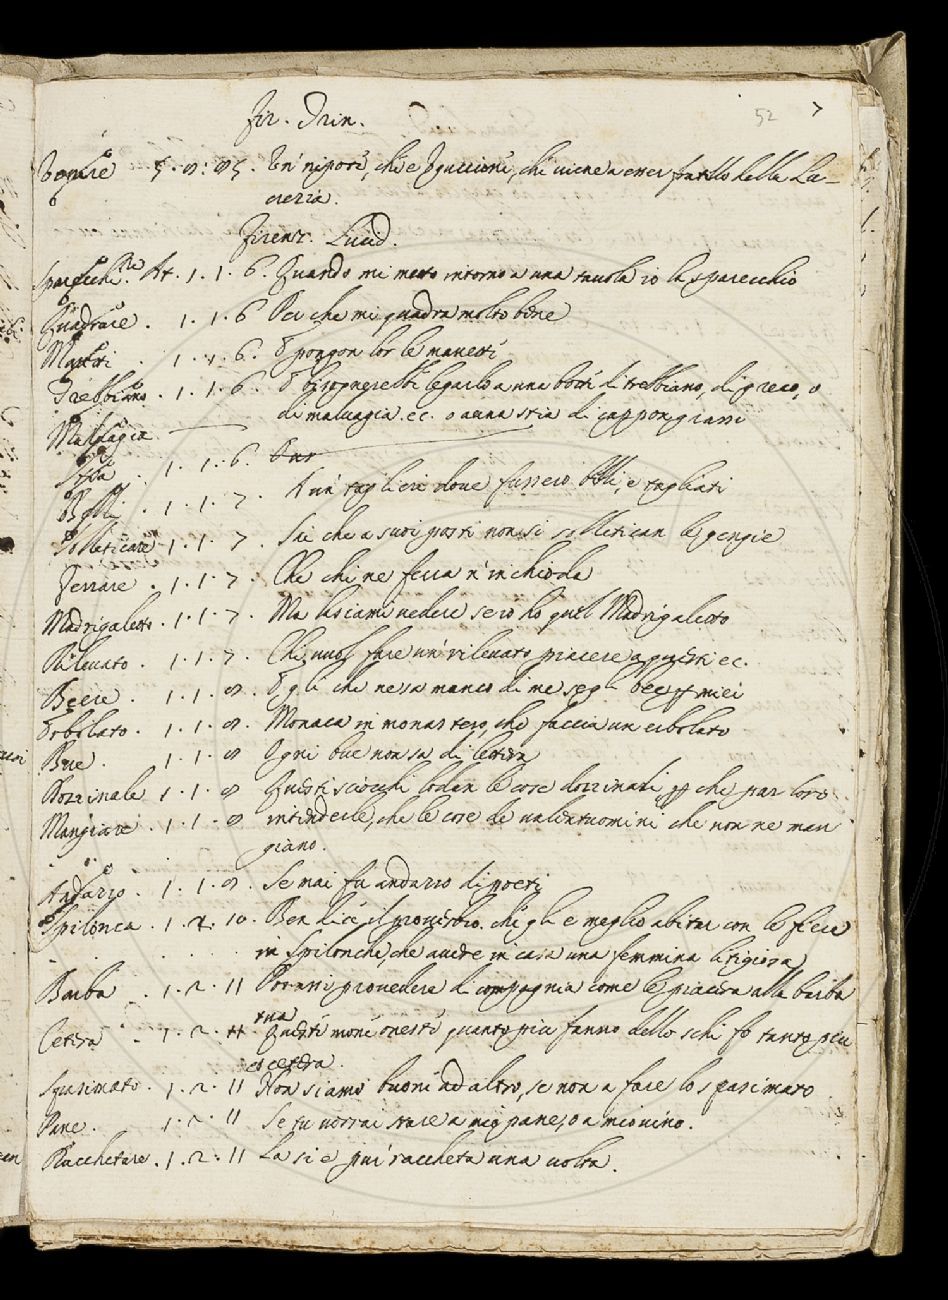 52 7
Fir. Trin.
5. 8: 85. Un nipote, che è Uguccione, che viene a esser fratello della Lu-
crezia.
Firenz. Lucid.
Sparecchi.re At. 1. 1. 6. Quando mi metto intorno a una tavola io la sparecchio
Quadrare. 1. 1. 6 Poi che mi quadra molto bene
1. 1. 6. E porgon lor le
Trebbiano. 1. 1. 6. E bisognerebbe legarlo a una botte di trebbiano, di greco, o
Malvagia di malvagia ec. o a una stia di capponi grassi
Stia. 1. 1. 6.
Belli. 1. 1. 7. A un taglier dove fussero belli, e tagliati
Solleticare 1. 1. 7. Sie che a suoi posti non si solletican le gengie
Serrare. 1. 1. 7. Che chi ne serra n'inchioda
Madrigaletto. 1. 1. 7. Ma lasciami vedere se io ho quel Madrigaletto
Rilevato. 1. 1. 7. Chi vuol fare un rilevato piacere a questi ec.
Beere. 1. 1. 8. Egli che ne sa manco di me se gli bee per miei
Erbolato. 1. 1. 8. Monaca in monastero, che faccia un erbolato
Bue. 1. 1. 8 Ogni bue non sa di lettera
Dozzinale 1. 1. 8 Questi sciocchi lodan le cose dozzinali, perche par loro
Mangiare. 1. 1. 8 intenderle, che le cose de valentuomini che non ne man
giano.
Andazzo. 1. 1. 8. Se mai fu andazzo di poeti
Spilonca. 1. 2. 10. Ben dice il proverbio, ch'egli è meglio abitar con le fiere
in Spilonche, che avere in casa una femmina litigiosa
Barba. 1. 2. 11 Potrassi provedere di compagnia come le piacera alla barba
tua
Cetera. 1. 2. 11 Queste mone oneste quanto piu fanno dello schifo tanto piu
Spasimato. 1. 2. 11 Non siamo buoni ad altro, se non a fare lo spasimato
Pane. 1. 2. 11 Se tu vorrai stare a mio pane, o a mio vino.
Racchetare. 1. 2. 11 La si è pur racchetata una volta.